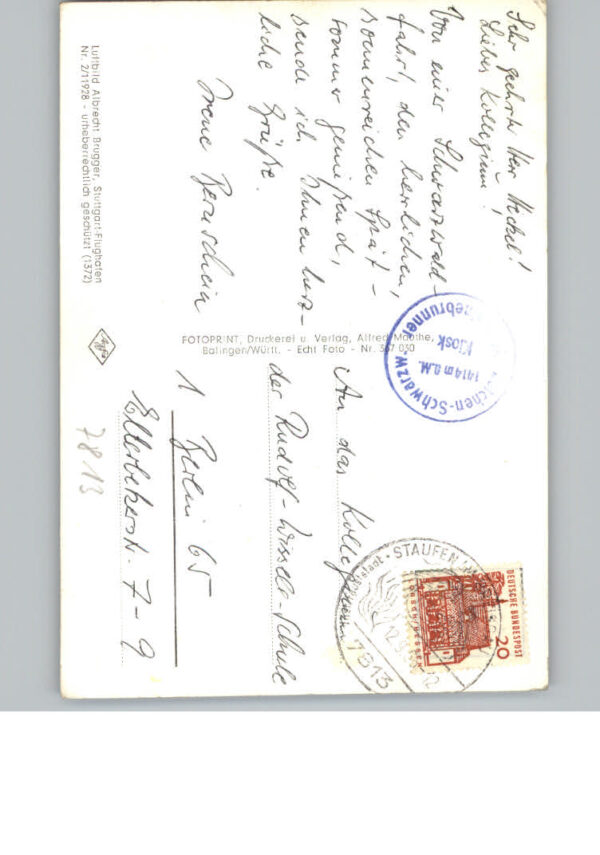 Sehr geehrter Herr Heckel!
Liebes Kollegium!
Von einer Schwarzwald-
fahrt, den herrlichen,
sonnenreichen Spät-
sommer genießend,
sende ich Ihnen herz-
liche Grüße.
Irene
Luftbild Albrecht Brugger, Stuttgart-Flughafen
Nr. 2/11928 - urheberrechtlich geschützt (1372)
FOTOPRINT, Druckerei u. Verlag, Alfred Mauthe,
Balingen/Württ. - Echt Foto - Nr. 367 030
Agfa
Kiosk
1414 m ü.M.
chen-Schwarzw.
An das Kollegium
der Rudolf-Wissell-Schule
1 Berlin 65
Ellerbekerstr. 7-9
7813
STAUFEN
7813
DEUTSCHE BUNDESPOST
20